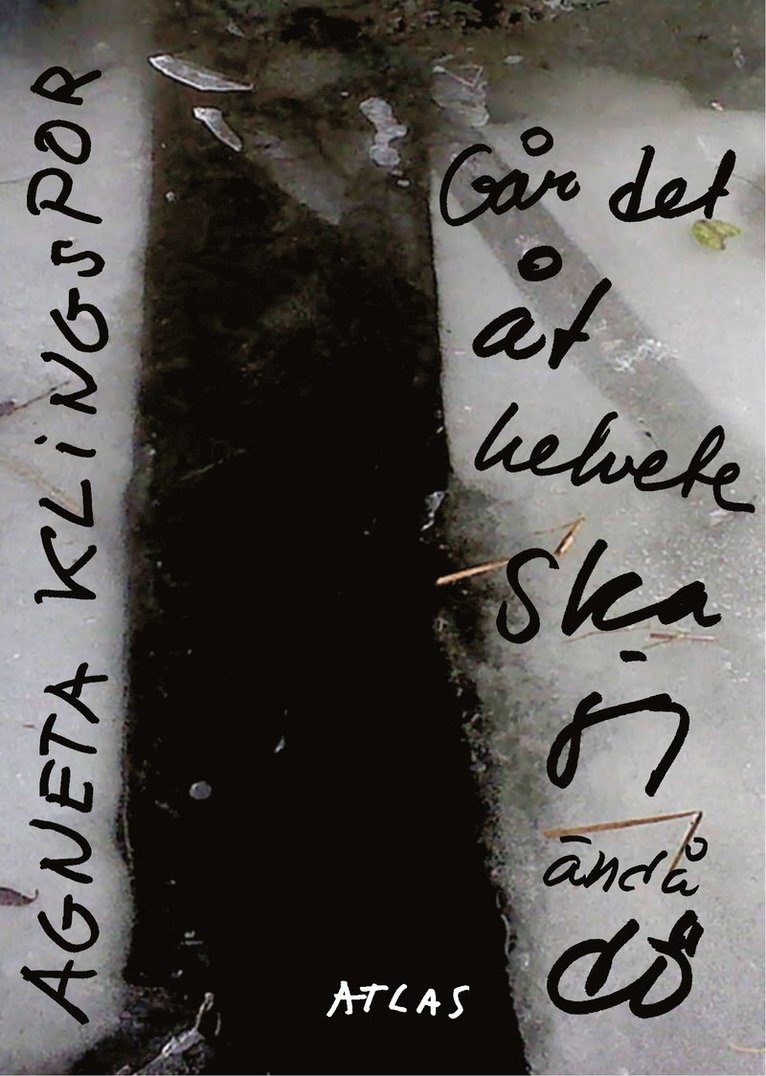 AGNETA KLINGSPOR
Går det
åt
helvete
Ska
jag
ändå
dö
ATLAS